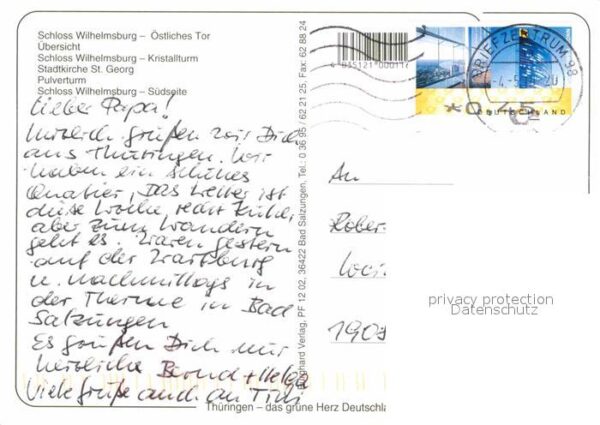 Schloss Wilhelmsburg – Östliches Tor
Übersicht
Schloss Wilhelmsburg – Kristallturm
Stadtkirche St. Georg
Pulverturm
Schloss Wilhelmsburg – Südseite
Lieber Papa!
Herzlich grüßen wir Dich
aus Thüringen. Wir
haben ein schönes
Quatier, Das Wetter ist
diese Woche, recht kühl,
aber zum Wandern
geht es. Waren gestern
auf der Wartburg
u. nachmittags in
der Therme in Bad
Salzungen
Es grüßen Dich
herzliche Bernd + Helga
Viele Grüße auch an Tini
Verlag, PF 12 02, 36422 Bad Salzungen, Tel.: 0 36 95 / 62 21 25, Fax: 62 88 24
BRIEFZENTRUM 98
0,45
DEUTSCHLAND
An
privacy protection
Datenschutz
Thüringen – das grüne Herz Deutschla